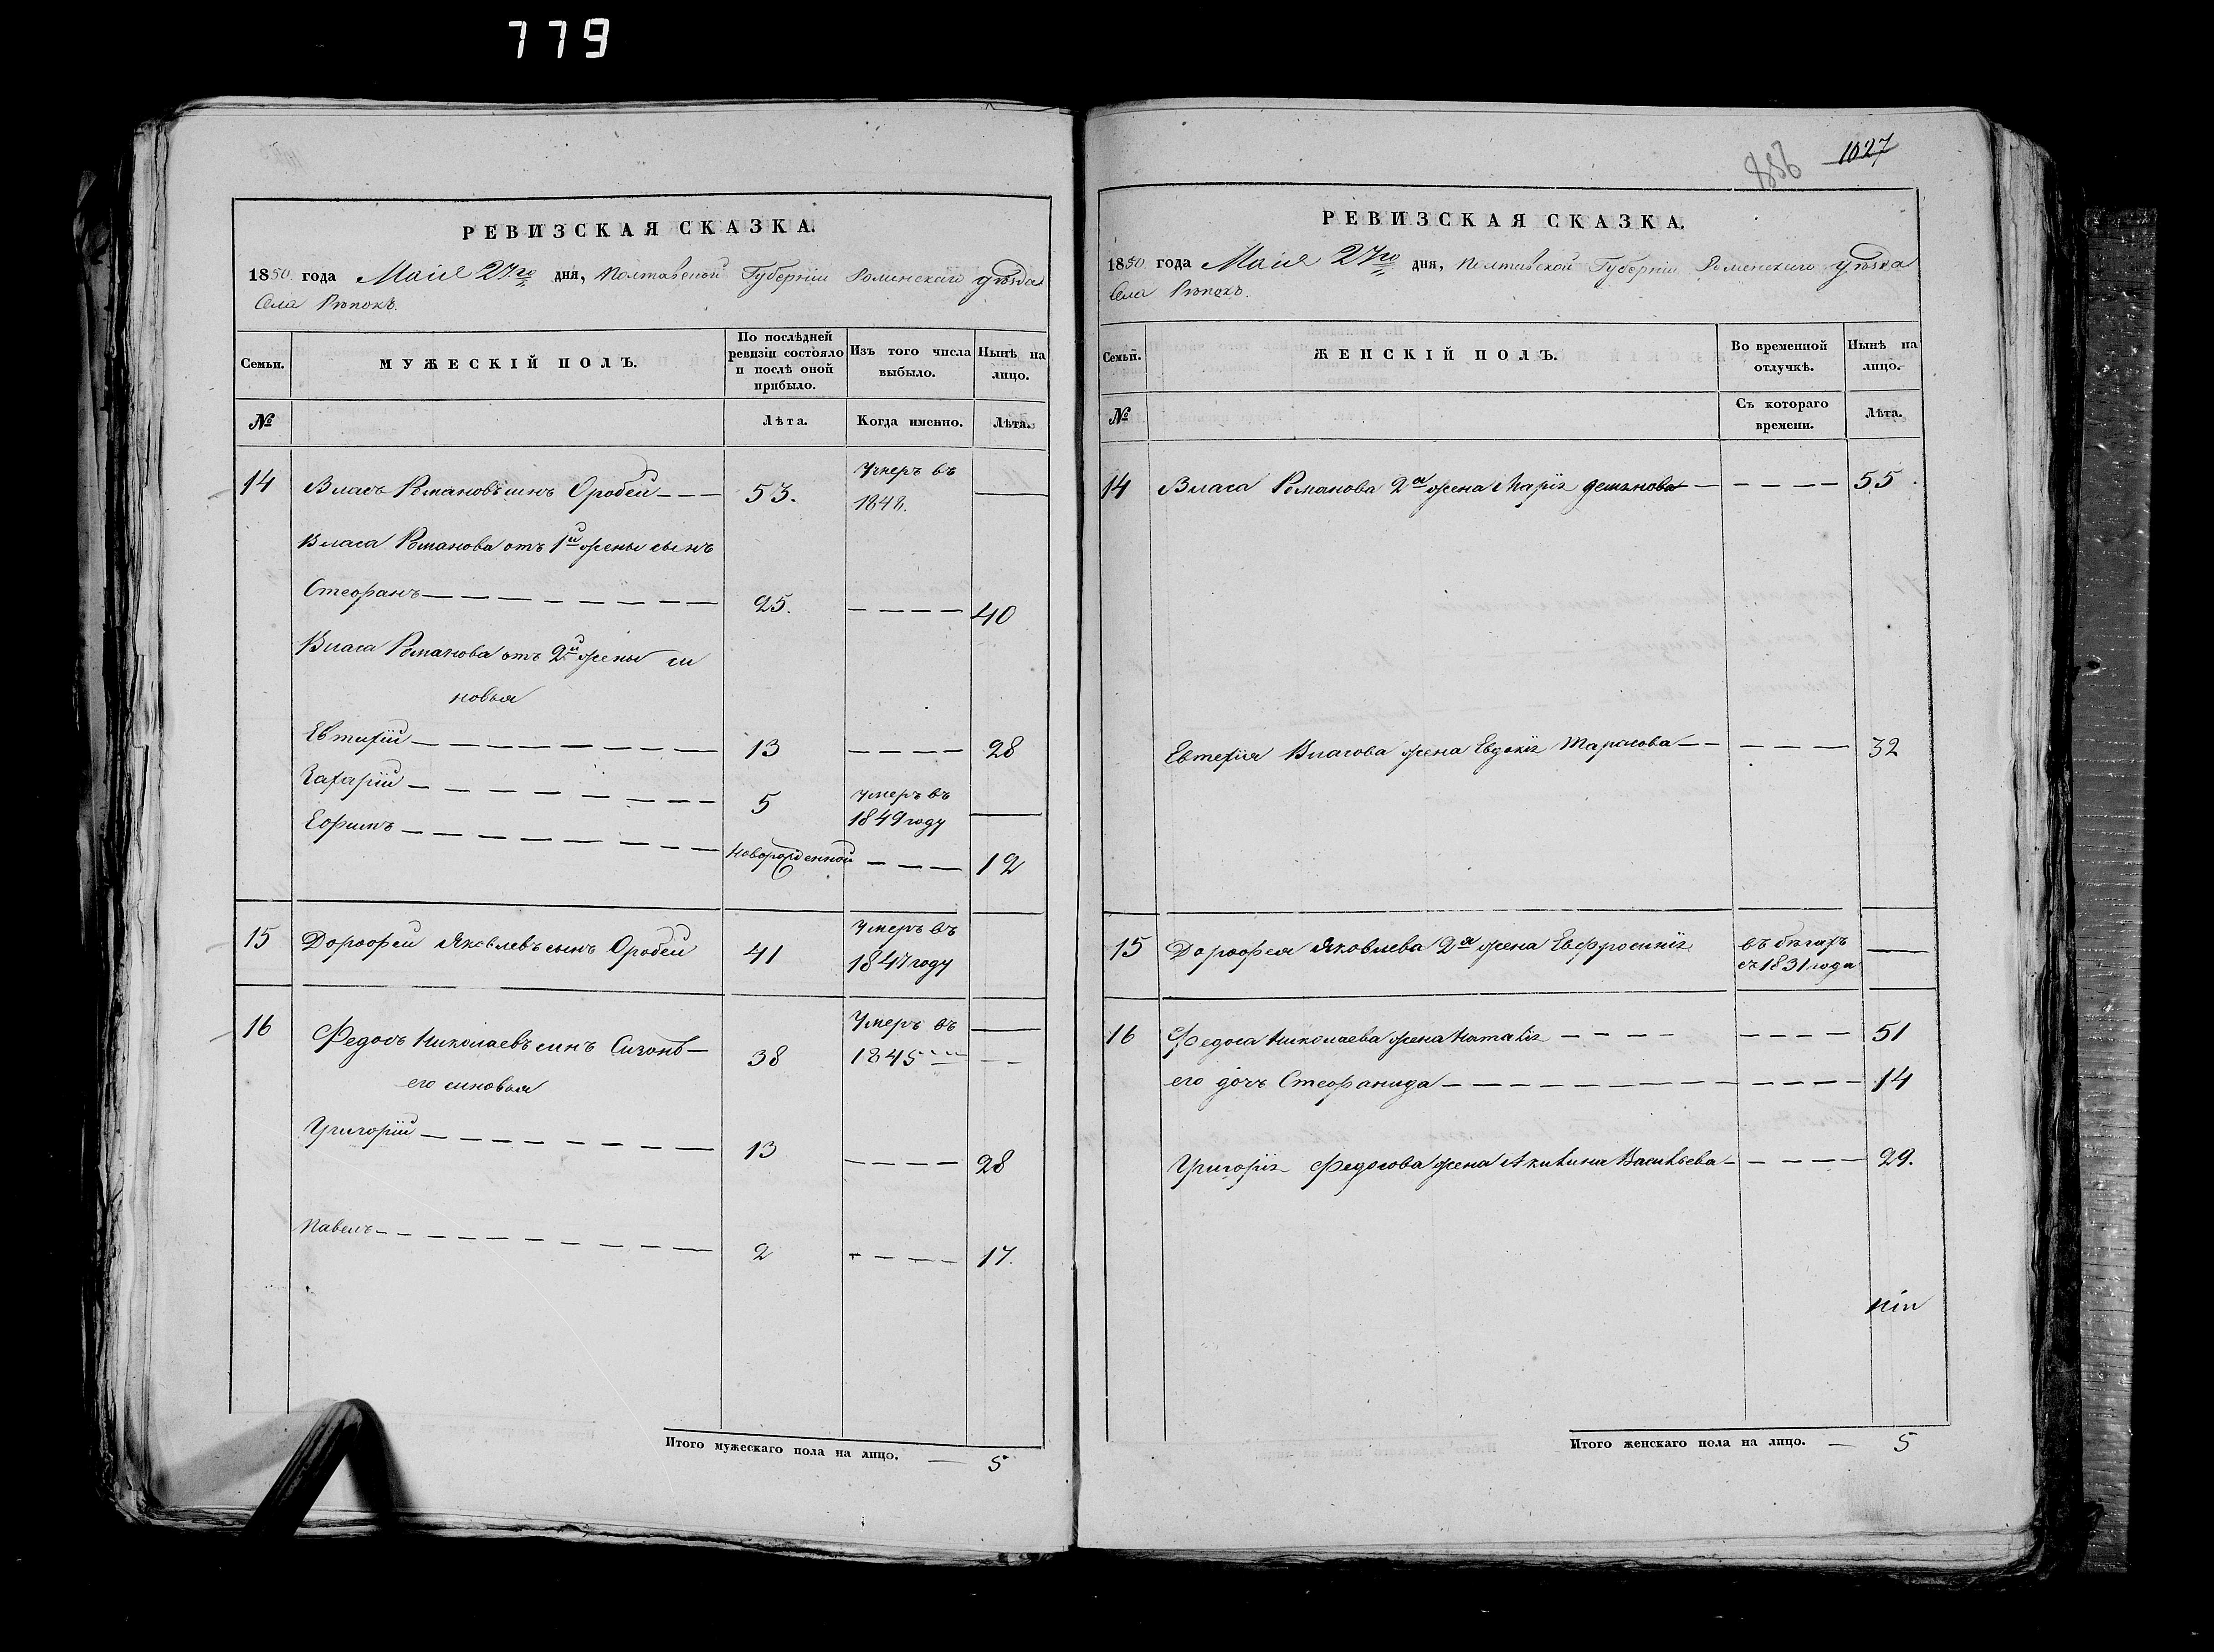 779
РЕВИЗСКАЯ СКАЗКА.
1850 года Маія 27го дня, Полтавской Губерніи Роменскаго уѣзда
Села Рѣпокъ.
Семьи.
МУЖЕСКІЙ ПОЛЪ.
По послѣдней ревизіи состояло и послѣ оной прибыло.
Изъ того числа выбыло.
Нынѣ на лицо.
№
Лѣта.
Когда именно.
Лѣта.
14 Власъ Романовъ синъ Оробей — — — 53. Умеръ въ 1848. —
Власа Романова отъ 1й жены сынъ
Стефанъ — — — — — — — — 25. — — — — 40
Власа Романова отъ 2й жены си
новья
Евтихій — — — — — — — — 13 — — — — 28
Захарій — — — — — — — — 5 Умеръ въ 1849 году —
Ефимъ — — — — — — — — новорожденной — — — 12
15 Дорофей Яковлевъ сынъ Оробей 41 Умеръ въ 1847 году
16 Федосъ Николаевъ синъ — 38 Умеръ въ 1845 — —
его синовья
Григорій — — — — — — — — 13 — — — — 28
Павелъ — — — — — — — — — 2 — — — — 17.
Итого мужескаго пола на лицо. — 5
856 1027
РЕВИЗСКАЯ СКАЗКА.
1850 года Маія 27го дня, Полтавской Губерніи Роменскаго уѣзда
Села Рѣпокъ.
Семьи.
ЖЕНСКІЙ ПОЛЪ.
Во временной отлучкѣ.
Нынѣ на лицо.
№
Съ котораго времени.
Лѣта.
14 Власа Романова 2я жена Марія Демянова — — — — — 55.
Евтехія Власова жена Евдокія Тарасова — — — — — 32
15 Дорофея Яковлева 2я жена Евфросинія въ бѣгахъ съ 1831 года —
16 Федоса Николаева жена Наталія — — — — — — — 51
его дочъ Стефанида — — — — — — — — — — — — 14
Григорія Федосова жена Акилина Васильева — — — — — 29.
Итого женскаго пола на лицо. — 5